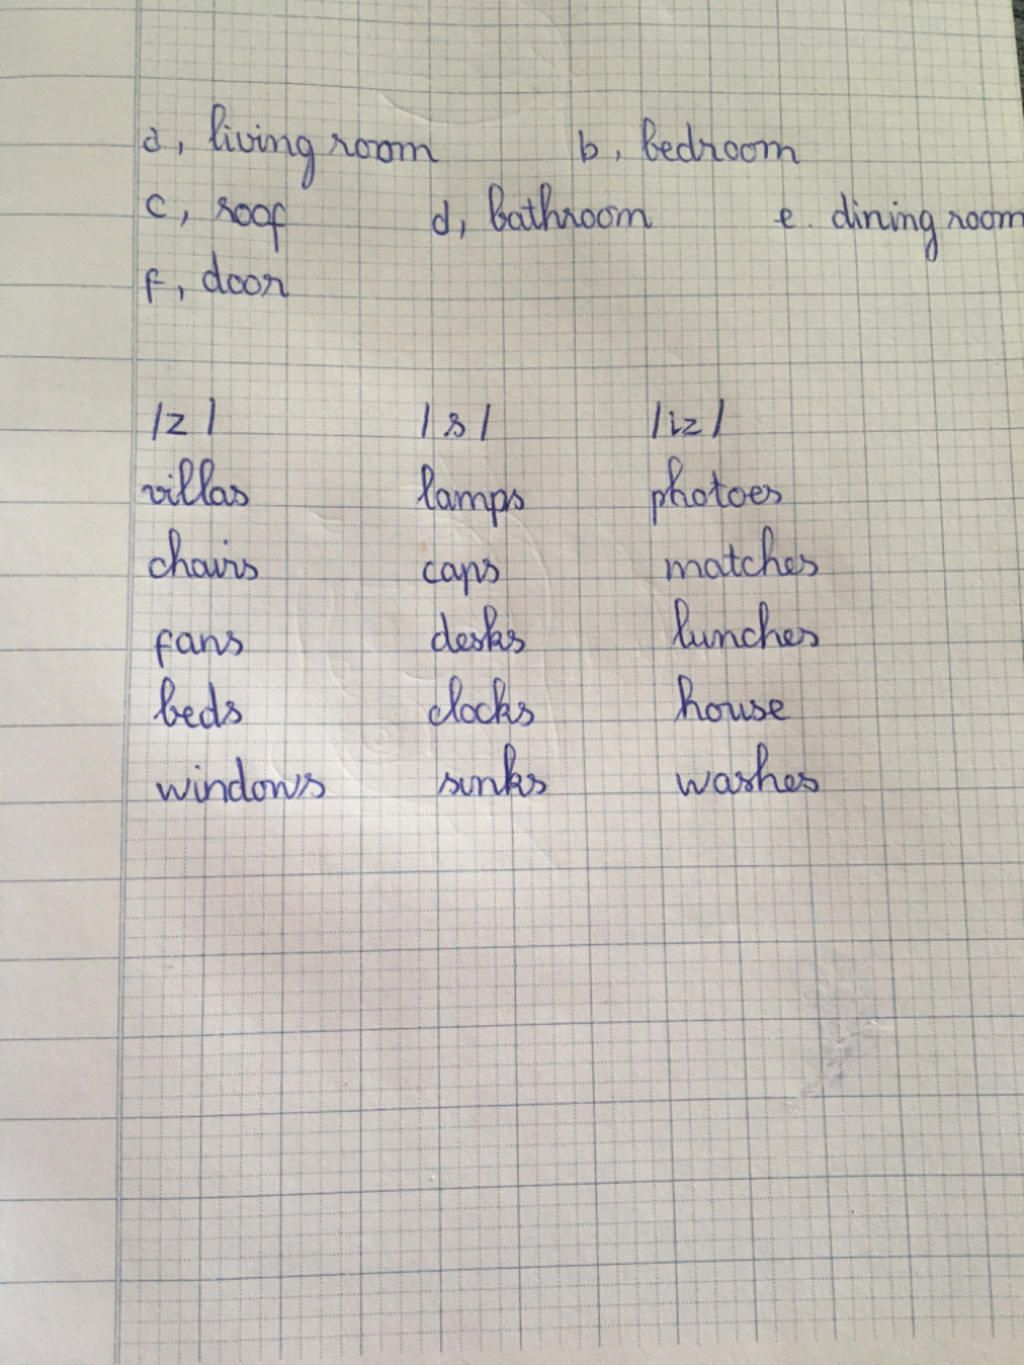 a, living room b, bedroom
c, roof d, bathroom e. dining room
f, door
/z/ /s/ /iz/
villas lamps photoes
chairs caps matches
fans desks lunches
beds clocks house
windows sinks washes